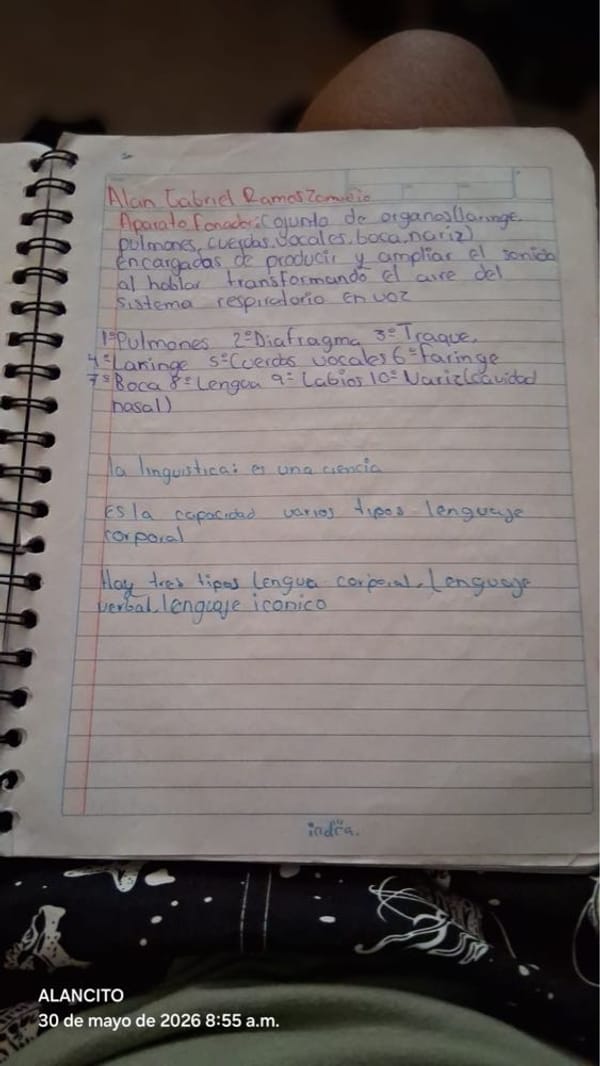 Alan Gabriel Ramos
Aparato Fonador: Cojunto de organos (laringe,
pulmones, cuerdas. Vocales. boca, nariz)
encargadas de producir y ampliar el sonido
al hablar transformando el aire del
sistema respiratorio en voz
1º Pulmones 2º Diafragma 3º Traque,
4º Laringe 5º Cuerdas vocales 6º faringe
7º Boca 8º Lengua 9º Labios 10º Nariz (cavidad
nasal)
la linguistica: es una ciencia
Es la capacidad varios tipos lenguaje
corporal
Hay tres tipos Lengua corporal, Lenguaje
verbal, lenguaje iconico
indra.
ALANCITO
30 de mayo de 2026 8:55 a.m.